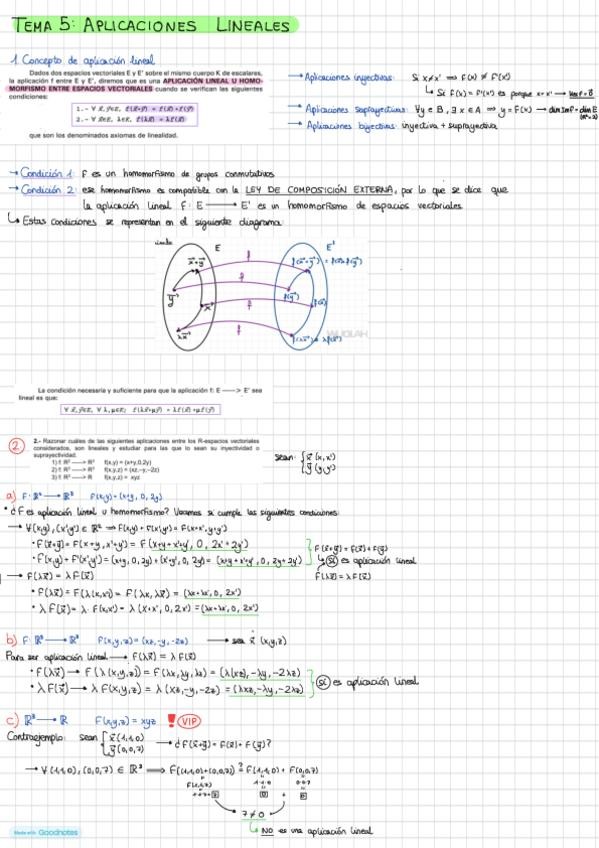 TEMA 5: APLICACIONES LINEALES
1. Concepto de aplicación lineal
Dados dos espacios vectoriales E y E' sobre el mismo cuerpo K de escalares,
la aplicación f entre E y E', diremos que es una APLICACIÓN LINEAL U HOMO-
MORFISMO ENTRE ESPACIOS VECTORIALES cuando se verifican las siguientes
condiciones:
que son los denominados axiomas de linealidad.
→ Aplicaciones inyectivas: Si x≠x' ⟹ F(x) ≠ F'(x')
↳ Si F(x) = F'(x') es porque x=x'
→ Aplicaciones suprayectivas: ∀y ∈ B, ∃ x ∈ A ⟹ y = F(x) → dim Im F = dim E
→ Aplicaciones biyectivas: inyectiva + suprayectiva
→ Condición 1: F es un homomorfismo de grupos conmutativos
→ Condición 2: ese homomorfismo es compatible con la LEY DE COMPOSICIÓN EXTERNA, por lo que se dice que
la aplicación lineal F: E → E' es un homomorfismo de espacios vectoriales.
↳ Estas condiciones se representan en el siguiente diagrama:
E E'
f
f
f
f
WUOLAH
La condición necesaria y suficiente para que la aplicación f: E ---> E' sea
lineal es que:
2
2.- Razonar cuáles de las siguientes aplicaciones entre los R-espacios vectoriales
considerados, son lineales y estudiar para las que lo sean su inyectividad o
suprayectividad.
1) f: R² → R³ f(x,y) = (x+y,0,2y)
2) f: R³ → R³ f(x,y,z) = (xz,-y,-2z)
3) f: R³ → R f(x,y,z) = xyz
sean: { x⃗ (x,x')
y⃗ (y,y')
a) F: R² → R³ F(x,y) = (x+y, 0, 2y)
• ¿F es aplicación lineal u homomorfismo? Veamos si cumple las siguientes condiciones:
→ ∀(x,y), (x',y') ∈ R² ⟹ F(x,y) + F(x',y') = F(x+x', y+y')
• F(x⃗+y⃗) = F(x+y, x'+y') = F(x+y+x'+y', 0, 2x'+2y')
• F(x,y) + F'(x',y') = (x+y, 0, 2y) + (x'+y', 0, 2y') = (x+y+x'+y', 0, 2y+2y')
F(x⃗+y⃗) = F(x⃗) + F(y⃗)
↳ SÍ es aplicación lineal
F(λx⃗) = λF(x⃗)
→ F(λx⃗) = λ F(x⃗)
• F(λx⃗) = F(λ(x,x')) = F(λx, λx') = (λx+λx', 0, 2x')
• λ F(x⃗) = λ · F(x,x') = λ (x+x', 0, 2x') = (λx+λx', 0, 2x')
b) F: R³ → R³ F(x,y,z) = (xz, -y, -2z) → sea x⃗ (x,y,z)
Para ser aplicación lineal → F(λx⃗) = λ F(x⃗)
• F(λx⃗) → F(λ(x,y,z)) = F(λx, λy, λz) = (λ(xz), -λy, -2λz)
• λF(x⃗) → λ F(x,y,z) = λ (xz, -y, -2z) = (λxz, -λy, -2λz)
SÍ es aplicación lineal
c) R³ → R F(x,y,z) = xyz ! VIP
Contraejemplo: sean { x⃗ (1,1,0)
y⃗ (0,0,7)
→ ¿F(x⃗+y⃗) = F(x⃗) + F(y⃗)?
→ ∀ (1,1,0), (0,0,7) ∈ R³ ⟹ F((1,1,0)+(0,0,7)) ?= F(1,1,0) + F(0,0,7)
F(1,1,7) 1·1·0 0·0·7
1·1·7=7 0 + 0
7 ≠ 0
↳ NO es una aplicación lineal
Made with Goodnotes